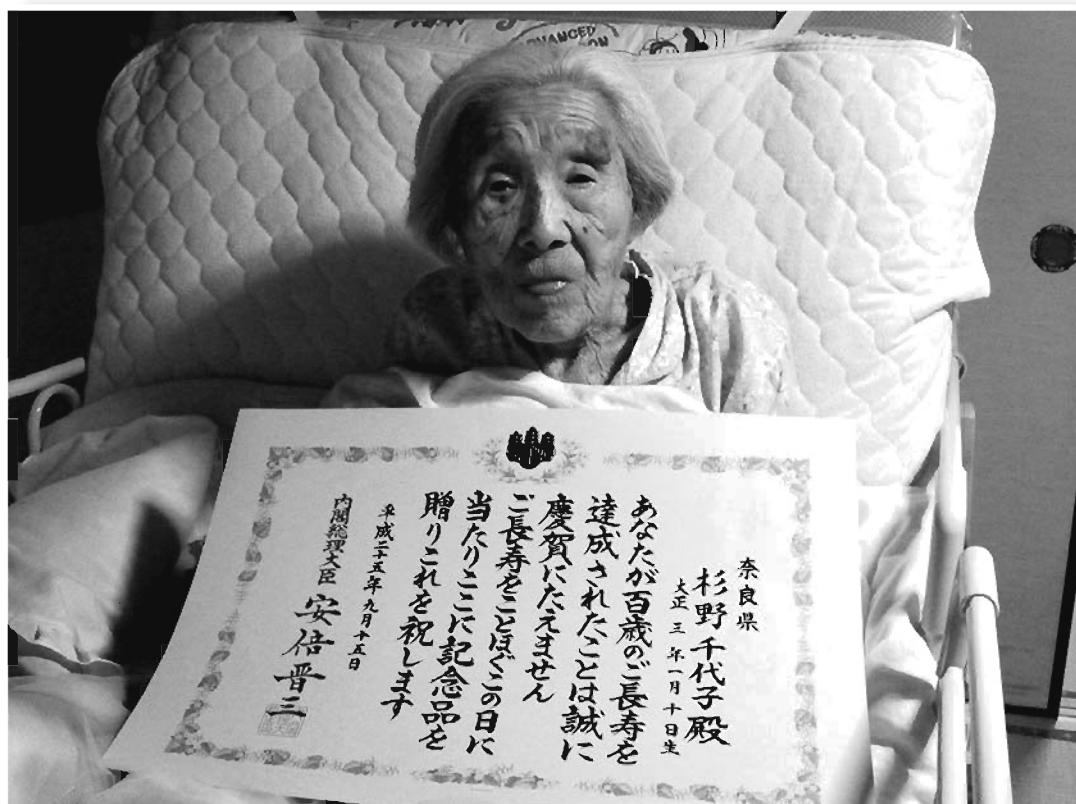 ADVANCED
奈良県
杉野千代子殿
大正三年一月十日生
あなたが百歳のご長寿を
達成されたことは誠に
慶賀にたえません
ご長寿をことほぐこの日に
当たりここに記念品を
贈りこれを祝します
平成二十五年九月十五日
内閣総理大臣 安倍晋三